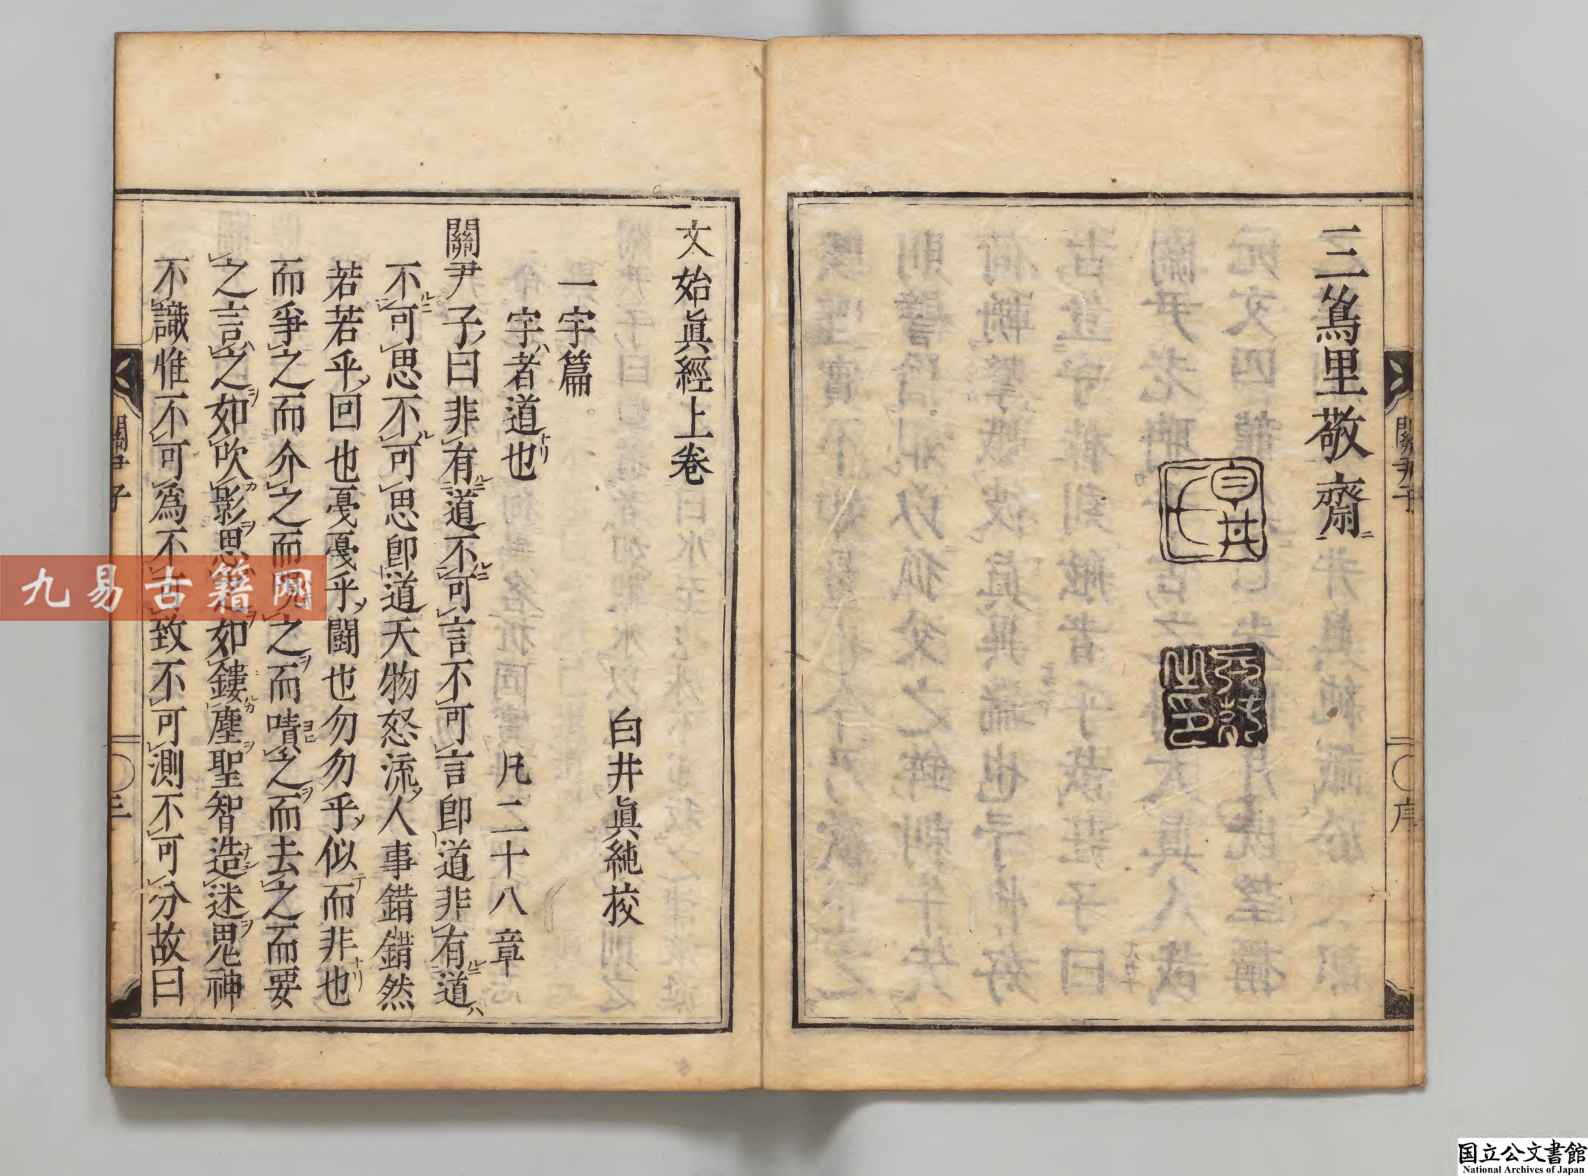 三篶里敬齋
臼井
氏
之印
關尹子
序
文始眞經上卷
臼井眞純校
一宇篇
宇者道也 凡二十八章
關尹子曰非有道不可言不可言卽道非有道
不可思不可思卽道天物怒流人事錯錯然
若若乎回也戞戞乎鬪也勿勿乎似而非也
而爭之而介之而哯之而嘖之而去之而要
之言之如吹影思之如鏤塵聖智造迷鬼神
不識惟不可爲不可致不可測不可分故曰
關尹子
三
九易古籍网
国立公文書館
National Archives of Japan